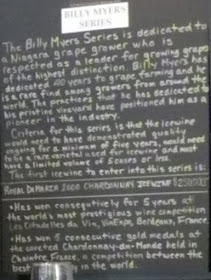 BILLY MYERS
SERIES
The Billy Myers Series is dedicated to
a Niagara grape grower who is
respected as a leader for growing grapes
of the highest distinction. Billy Myers has
dedicated 100 years to grape farming and he
is a rare find among growers from around the
world. The practices that he has used throughout
his pristine vineyard have positioned him as a
pioneer in the industry.
Criteria for this series is that the icewine
would need to have demonstrated quality
ageing for a minimum of five years, would need
to be a rare varietal used for icewine and must
have a limited volume of 5 cases or less.
The first icewine to enter into this series is:
ROYAL DEMARIA 2000 CHARDONNAY ICEWINE
• Has won consecutively for 5 years at
the world's most prestigious wine competition
Les Citadelles du Vin, VinExpo, Bordeaux, France.
• Has won 5 consecutive gold medals at
the coveted Chardonnay-du-Monde held in
Chaintre, France, a competition between the
best in the world.